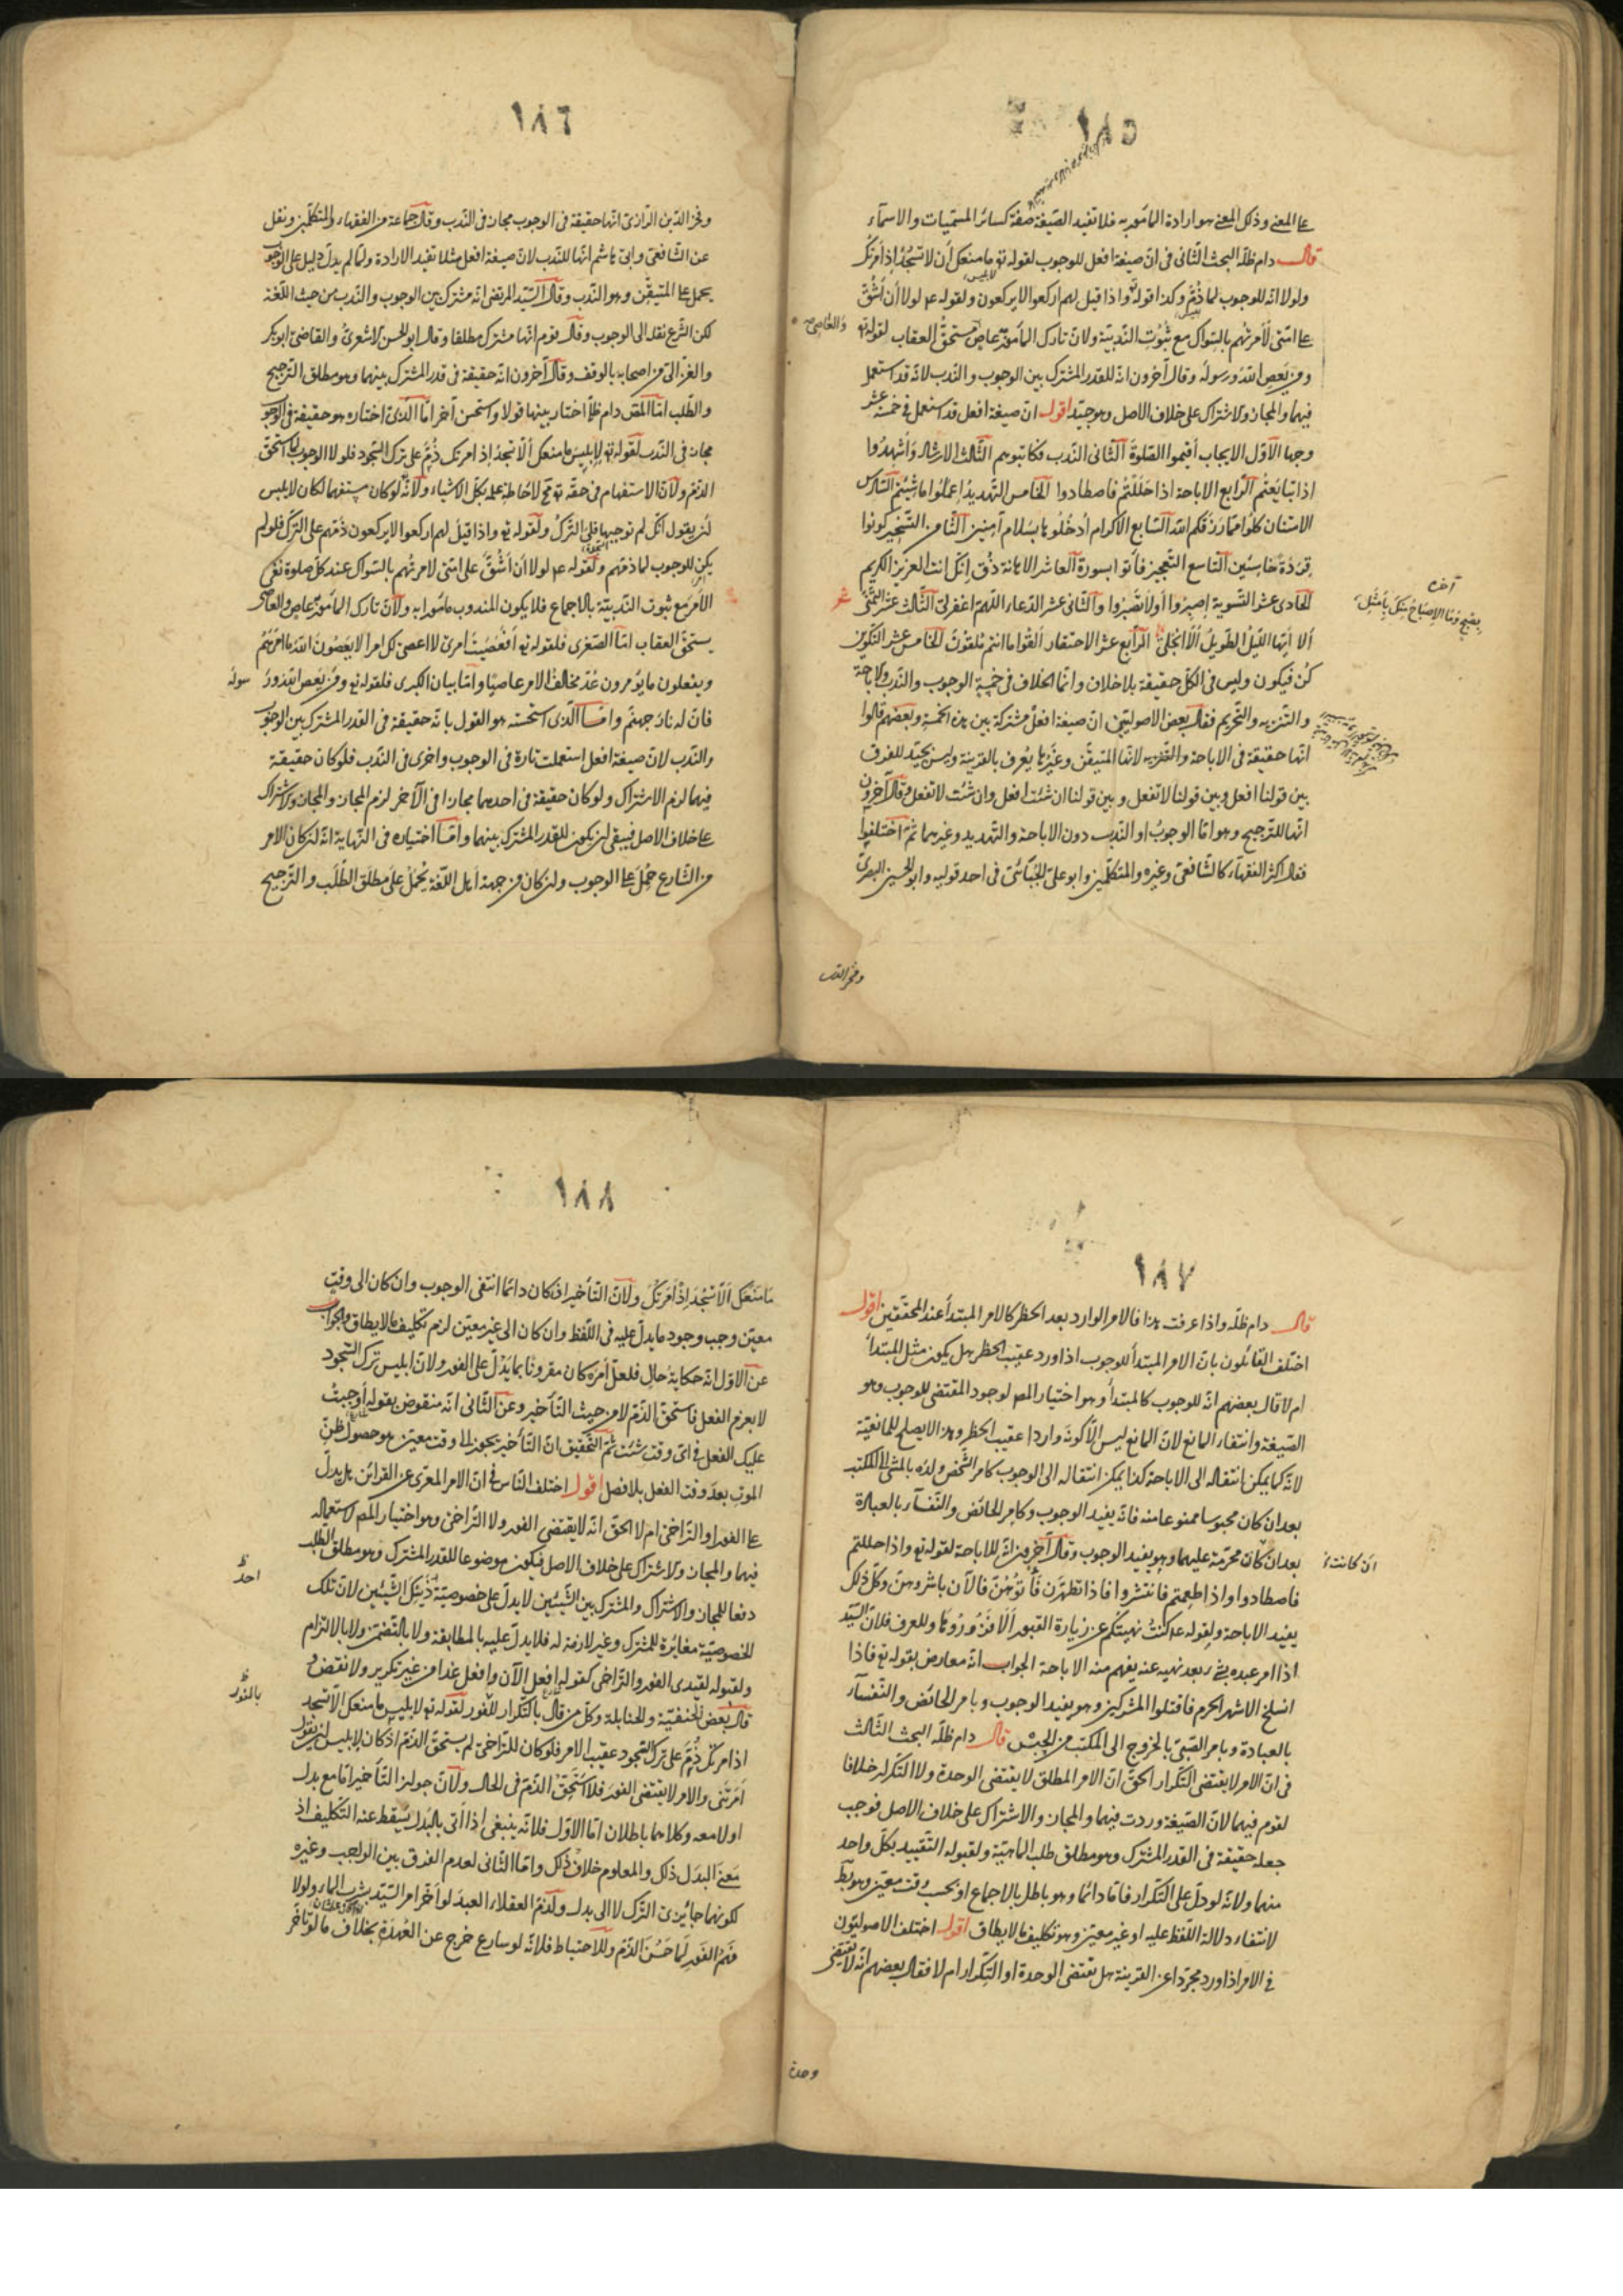 ١٨٥
على المعنى وذلك المعنى هو ارادة المأمور به فلا تفيد الصّيغة صفة كسائر المسمّيات والاسمآء
قال دام ظلّه البحث الثّانى فى انّ صيغة افعل للوجوب لقوله تع ما منعك أن لا تسجد إذ أمرتك
ولولا انّه للوجوب لما ذمّ وكذا قوله واذا قيل لهم اركعوا لا يركعون ولقوله عم لولا أن أشقّ
على امّتى لأمرتهم بالسّواك مع ثبوت النّدبيّة ولانّ تارك المأمور عاص مستحقّ العقاب لقوله تع
والعاصى
ومن يعص الله ورسوله وقال آخرون انّه للقدر المشترك بين الوجوب والنّدب لانّه قد استعمل
فيهما والمجاز والاشتراك على خلاف الاصل وهو جيّد اقول انّ صيغة افعل قد استعمل فى خمسة عشر
وجها الأوّل الايجاب أقيموا الصّلوة الثّانى النّدب فكاتبوهم الثّالث الارشاد وأشهدوا
اذا تبايعتم الرّابع الاباحة اذا حللتم فاصطادوا الخامس التّهديد اعملوا ما شئتم السّادس
الامتنان كلوا ممّا رزقكم الله السّابع الاكرام ادخلوها بسلام آمنين الثّامن التّسخير كونوا
قردة خاسئين التّاسع التّعجيز فأتوا بسورة العاشر الاهانة ذق انّك انت العزيز الكريم
الحادى عشر التّسوية اصبروا أو لا تصبروا والثّانى عشر الدّعاء اللّهمّ اغفر لى الثّالث عشر التّمنّى شعر
ألا أيّها اللّيل الطّويل ألا انجلى الرّابع عشر الاحتقار ألقوا ما انتم ملقون الخامس عشر التّكوين
آخره
بصبح وما الاصباح منك بأمثل
كن فيكون وليس فى الكلّ حقيقة بلا خلاف وانّما الخلاف فى خمسة الوجوب والنّدب والاباحة
والتّنزيه والتّحريم فقال بعض الاصوليّين انّ صيغة افعل مشتركة بين هذه الخمسة وبعضهم قالوا
انّها حقيقة فى الاباحة والتّنزيه لانّها المتيقّن وغيرها يعرف بالقرينة وليس بجيّد للفرق
بين قولنا افعل وبين قولنا لا تفعل وبين قولنا ان شئت افعل وان شئت لا تفعل وقال آخرون
انّها للتّرجيح وهو امّا الوجوب او النّدب دون الاباحة والتّهديد وغيرهما ثمّ اختلفوا
فقال اكثر الفقهآء كالشّافعىّ وغيره والمتكلّمين وابو علىّ الجبّائىّ فى احد قوليه وابو الحسين البصرىّ
وفخر الدّين
١٨٦
وفخر الدّين الرّازىّ انّها حقيقة فى الوجوب مجاز فى النّدب وقال جماعة من الفقهاء والمتكلّمين ونقل
عن الشّافعىّ وابى هاشم انّها للنّدب لانّ صيغة افعل مثلا تفيد الارادة ولمّا لم يدلّ دليل على الوجوب
يحمل على المتيقّن وهو النّدب وقال السّيّد المرتضى انّه مشترك بين الوجوب والنّدب من حيث اللّغة
لكن الشّرع نقله الى الوجوب وقال قوم انّها مشترك مطلقا وقال ابو الحسن الاشعرىّ والقاضى ابو بكر
والغزّالىّ من اصحابه بالوقف وقال آخرون انّه حقيقة فى قدر المشترك بينهما وهو مطلق التّرجيح
والطّلب امّا المصّ دام ظلّه اختار بينها قولا واستحسن آخر امّا الّذى اختاره هو حقيقة فى الوجوب
مجاز فى النّدب لقوله تع لابليس ما منعك ألّا تسجد إذ امرتك ذمّه على ترك السّجود فلولا الوجوب لما استحقّ
الذّمّ ولانّ الاستفهام فى حقّه تع مح لاحاطة علمه بكلّ الاشياء ولانّه لو كان مستفهما لكان لابليس
لن يقول انّك لم توجبها فلى التّرك ولقوله تع واذا قيل لهم اركعوا لا يركعون ذمّهم على التّرك فلو لم
يكن للوجوب لما ذمّهم ولقوله عم لولا أن أشقّ على امّتى لامرتهم بالسّواك عند كلّ صلوة نفى
الأمر مع ثبوت النّدبيّة بالاجماع فلا يكون المندوب مأمورا به ولانّ تارك المأمور عاص والعاصى
يستحقّ العقاب امّا الصّغرى فلقوله تع أفعصيت امرى لا اعصى لك امرا لا يعصون الله ما امرهم
ويفعلون ما يؤمرون عدّ مخالف الامر عاصيا وامّا بيان الكبرى فلقوله تع ومن يعص الله ورسوله
فانّ له نار جهنّم وامّا الّذى استحسنه هو القول بانّه حقيقة فى القدر المشترك بين الوجوب
والنّدب لانّ صيغة افعل استعملت تارة فى الوجوب واخرى فى النّدب فلو كان حقيقة
فيهما لزم الاشتراك ولو كان حقيقة فى احدهما مجازا فى الآخر لزم المجاز والمجاز والاشتراك
على خلاف الاصل فيبقى لن يكون للقدر المشترك بينهما وامّا اختياره فى النّهاية انّه لن كان الامر
من الشّارع حمل على الوجوب ولن كان من جهة اهل اللّغة يحمل على مطلق الطّلب والتّرجيح
١٨٧
قال دام ظلّه واذا عرفت هذا فالامر الوارد بعد الحظر كالامر المبتدأ عند المحقّقين اقول
اختلف القائلون بانّ الامر المبتدأ للوجوب اذا ورد عقيب الحظر هل يكون مثل المبتدأ
ام لا قال بعضهم انّه للوجوب كالمبتدأ وهو اختيار المص لوجود المقتضى للوجوب وهو
الصّيغة وانتفاء المانع لانّ المانع ليس الّا كونه واردا عقيب الحظر وهذا لا يصلح للمانعيّة
لانّه كما يمكن انتقاله الى الاباحة كذا يمكن انتقاله الى الوجوب كامر الشّخص ولده بالمشى الى المكتب
بعد ان كان محبوسا ممنوعا منه فانّه يفيد الوجوب وكامر الحائض والنّفسآء بالعبادة
بعد ان كان محرّمة عليهما وهو يفيد الوجوب وقال آخرون انّه للاباحة لقوله تع واذا حللتم
ان كانت
فاصطادوا واذا طعمتم فانتشروا فاذا تطهّرن فأتوهنّ فالآن باشروهنّ وكلّ ذلك
يفيد الاباحة ولقوله عم كنت نهيتكم عن زيارة القبور ألا فزوروها وللعرف فلانّ السّيّد
اذا امر عبده بشىء بعد نهيه عنه يفهم منه الاباحة الجواب انّه معارض بقوله تع فاذا
انسلخ الاشهر الحرم فاقتلوا المشركين وهو يفيد الوجوب وبامر الحائض والنّفسآء
بالعبادة وبامر الصّبىّ بالخروج الى المكتب من الحبس قال دام ظلّه البحث الثّالث
فى انّ الامر لا يقتضى التّكرار الحقّ انّ الامر المطلق لا يقتضى الوحدة ولا التّكرار خلافا
لقوم فيهما لانّ الصّيغة وردت فيهما والمجاز والاشتراك على خلاف الاصل فوجب
جعله حقيقة فى القدر المشترك وهو مطلق طلب الماهيّة ولقبوله التّقييد بكلّ واحد
منهما ولانّه لو دلّ على التّكرار فامّا دائما وهو باطل بالاجماع او بحسب وقت معيّن وهو بط
لانتفاء دلالة اللّفظ عليه او غير معيّن وهو تكليف ما لا يطاق اقول اختلف الاصوليّون
فى الامر اذا ورد مجرّدا عن القرينة هل يقتضى الوحدة او التّكرار ام لا فقال بعضهم انّه لا يقتضى
وحدة
١٨٨
ما منعك ألّا تسجد اذ أمرتك ولانّ التّأخير ان كان دائما انتفى الوجوب وان كان الى وقت
معيّن وجب وجود ما يدلّ عليه فى اللّفظ وان كان الى غير معيّن لزم تكليف ما لا يطاق والجواب
عن الاوّل انّه حكاية حال فلعلّ أمره كان مقرونا بما يدلّ على الفور ولانّ ابليس ترك السّجود
لا بعزم الفعل فاستحقّ الذّمّ لا من حيث التّأخير وعن الثّانى انّه منقوض بقوله أوجبت
عليك الفعل فى اىّ وقت شئت ثمّ التّحقيق انّ التّأخير يجوز الى وقت معيّن هو حصول ظنّ
الموت بعد وقت الفعل بلا فصل اقول اختلف النّاس فى انّ الامر المعرّى عن القرائن هل يدلّ
على الفور او التّراخى ام لا الحقّ انّه لا يقتضى الفور ولا التّراخى وهو اختيار المص لاستعماله
فيهما والمجاز والاشتراك على خلاف الاصل فيكون موضوعا للقدر المشترك وهو مطلق الطّلب
دفعا للمجاز والاشتراك والمشترك بين الشّيئين لا يدلّ على خصوصيّة ذينك الشّيئين لانّ تلك
احد ظ
الخصوصيّة مغائرة للمشترك وغير لازمة له فلا يدلّ عليه بالمطابقة ولا بالتّضمّن ولا بالالتزام
ولقبوله لقيدى الفور والتّراخى كقوله افعل الآن وافعل غدا من غير تكرير ولا نقض و
قال بعض الحنفيّة والحنابلة وكلّ من قال بالتّكرار للفور لقوله تع لابليس ما منعك الّا تسجد
بالفور ظ
اذ امرتك ذمّ على ترك السّجود عقيب الامر فلو كان للتّراخى لم يستحقّ الذّمّ اذ كان لابليس لن يقول
أمرتنى والامر لا يقتضى الفور فلا استحقّ الذّمّ فى الحال ولانّ جواز التّأخير امّا مع بدل
او لا معه وكلاهما باطلان امّا الاوّل فلانّه ينبغى اذا اتى بالبدل يسقط عنه التّكليف اذ
معنى البدل ذلك والمعلوم خلاف ذلك وامّا الثّانى لعدم الفرق بين الواجب وغيره
لكونهما جائزى التّرك لا الى بدل ولذمّ العقلاء العبد لو أخّر امر السّيّد بشرب الماء ولولا
فهم الفور لما حسن الذّمّ وللاحتياط فلانّه لو سارع خرج عن العهدة بخلاف ما لو تأخّر